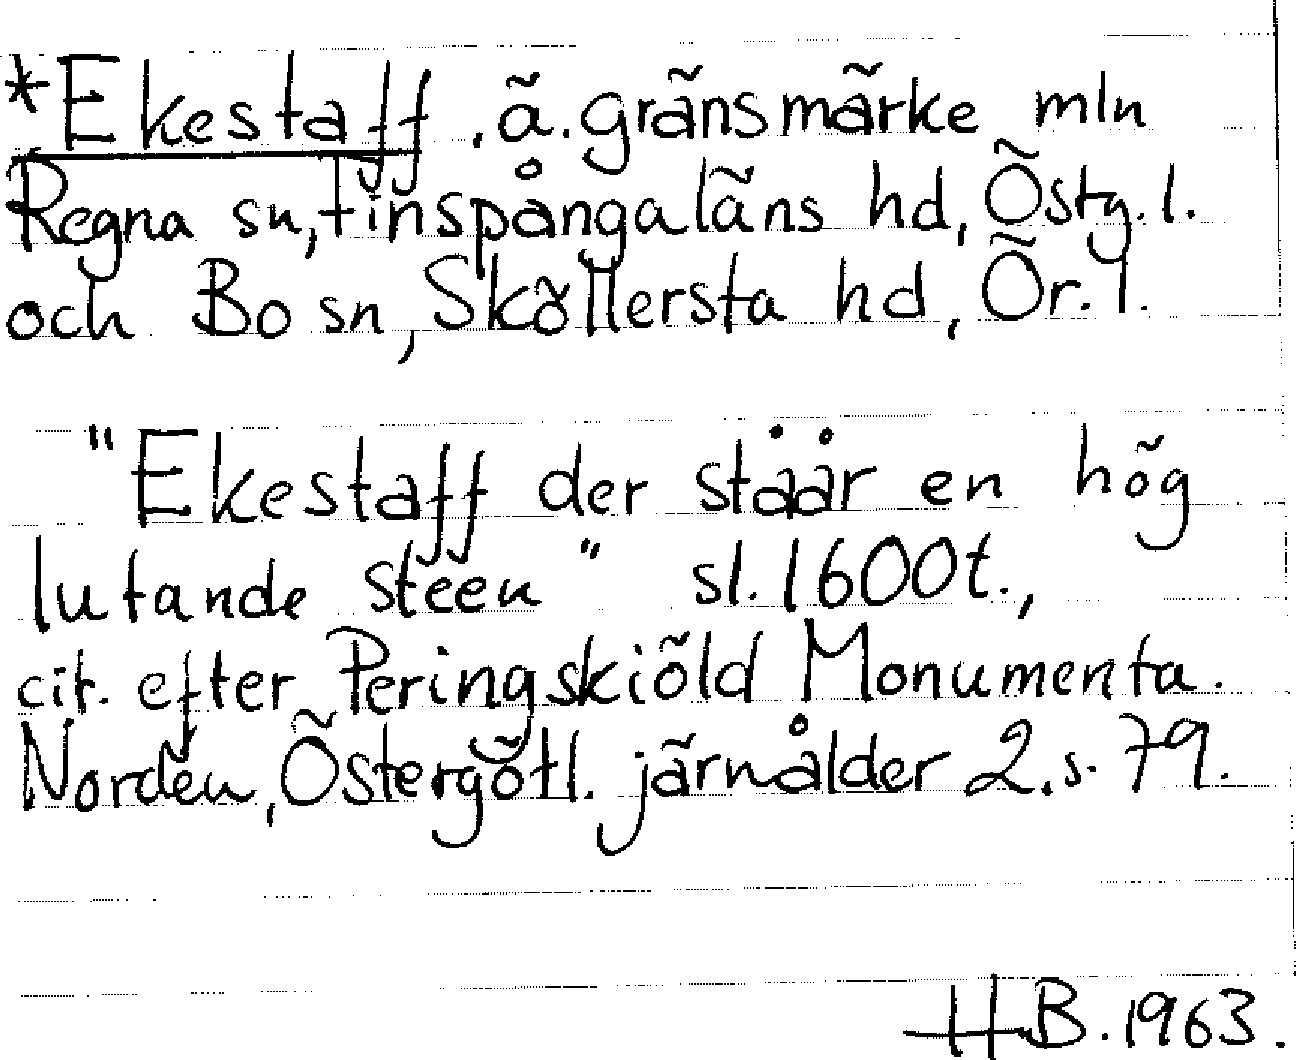 *Ekestaff, ä. gränsmärke mln
Regna sn, Finspångaläns hd, Östg. l.
och Bo sn, Sköllersta hd, Ör. l.
"Ekestaff der ståår en hög
lutande steen" sl. 1600t.,
cit. efter Peringskiöld Monumenta.
Nordén, Östergötl. järnålder 2. s. 79.
HB. 1963.